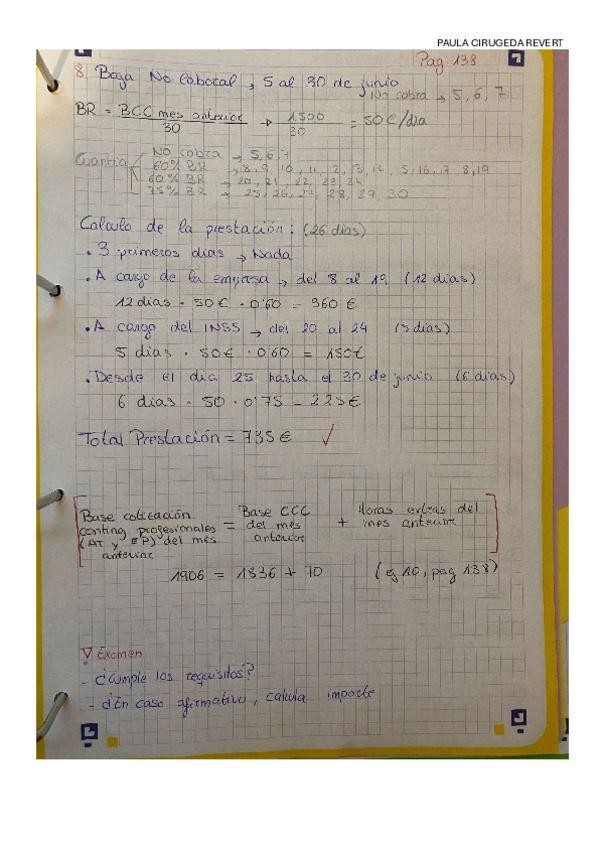 PAULA CIRUGEDA REVERT
Pag 138
8. Baja No laboral → 5 al 30 de junio
No cobra → 5, 6, 7
BR = BCC mes anterior / 30 → 1.500 / 30 = 50 €/dia
Cuantia
No cobra → 5, 6, 7
60% BR → 8, 9, 10, 11, 12, 13, 14, 15, 16, 17, 18, 19
60% BR → 20, 21, 22, 23, 24
75% BR → 25, 26, 27, 28, 29, 30
Calculo de la prestación: (26 dias)
• 3 primeros dias → Nada
• A cargo de la empresa → del 8 al 19 (12 dias)
12 dias · 50 € · 0'60 = 360 €
• A cargo del INSS → del 20 al 24 (5 dias)
5 dias · 50€ · 0'60 = 150€
• Desde el dia 25 hasta el 30 de junio (6 dias)
6 dias · 50 · 0'75 = 225€
Total Prestación = 735 € ✓
Base cotización conting profesionales (AT y EP) del mes anterior = Base CCC del mes anterior + Horas extras del mes anterior
1906 = 1836 + 70 (ej 10, pag 138)
Examen
- ¿Cumple los requisitos?
- ¿En caso afirmativo, calcula importe